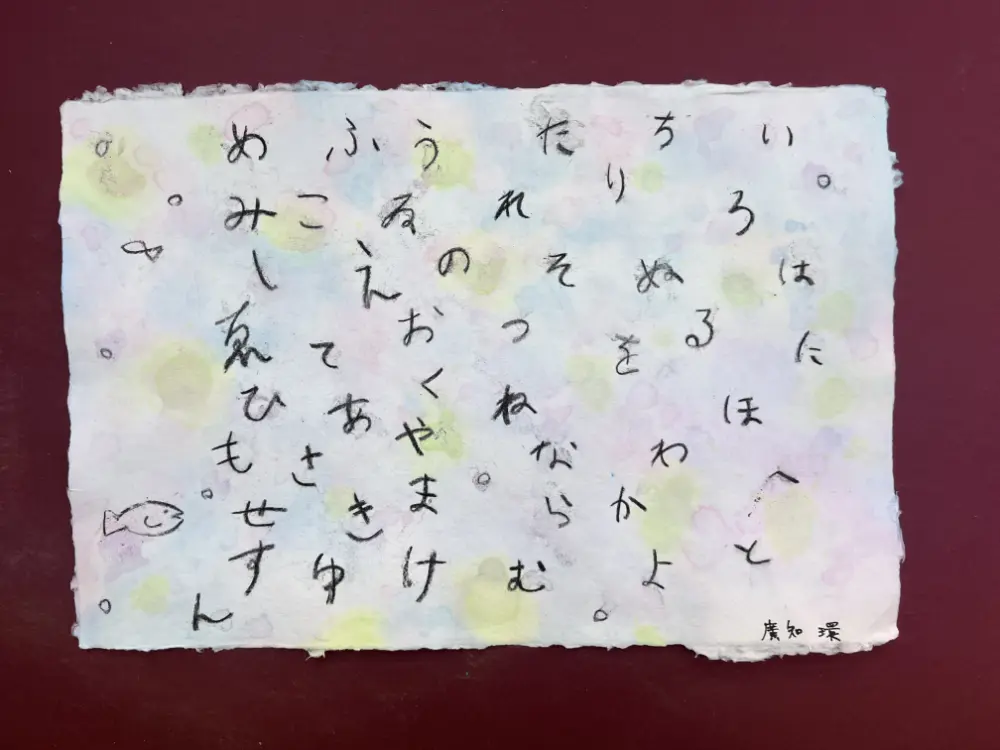 いろはにほへと
ちりぬるをわかよ
たれそつねならむ
うゐのおくやまけ
ふこえてあさきゆ
めみしゑひもせす
ん
廣知 環